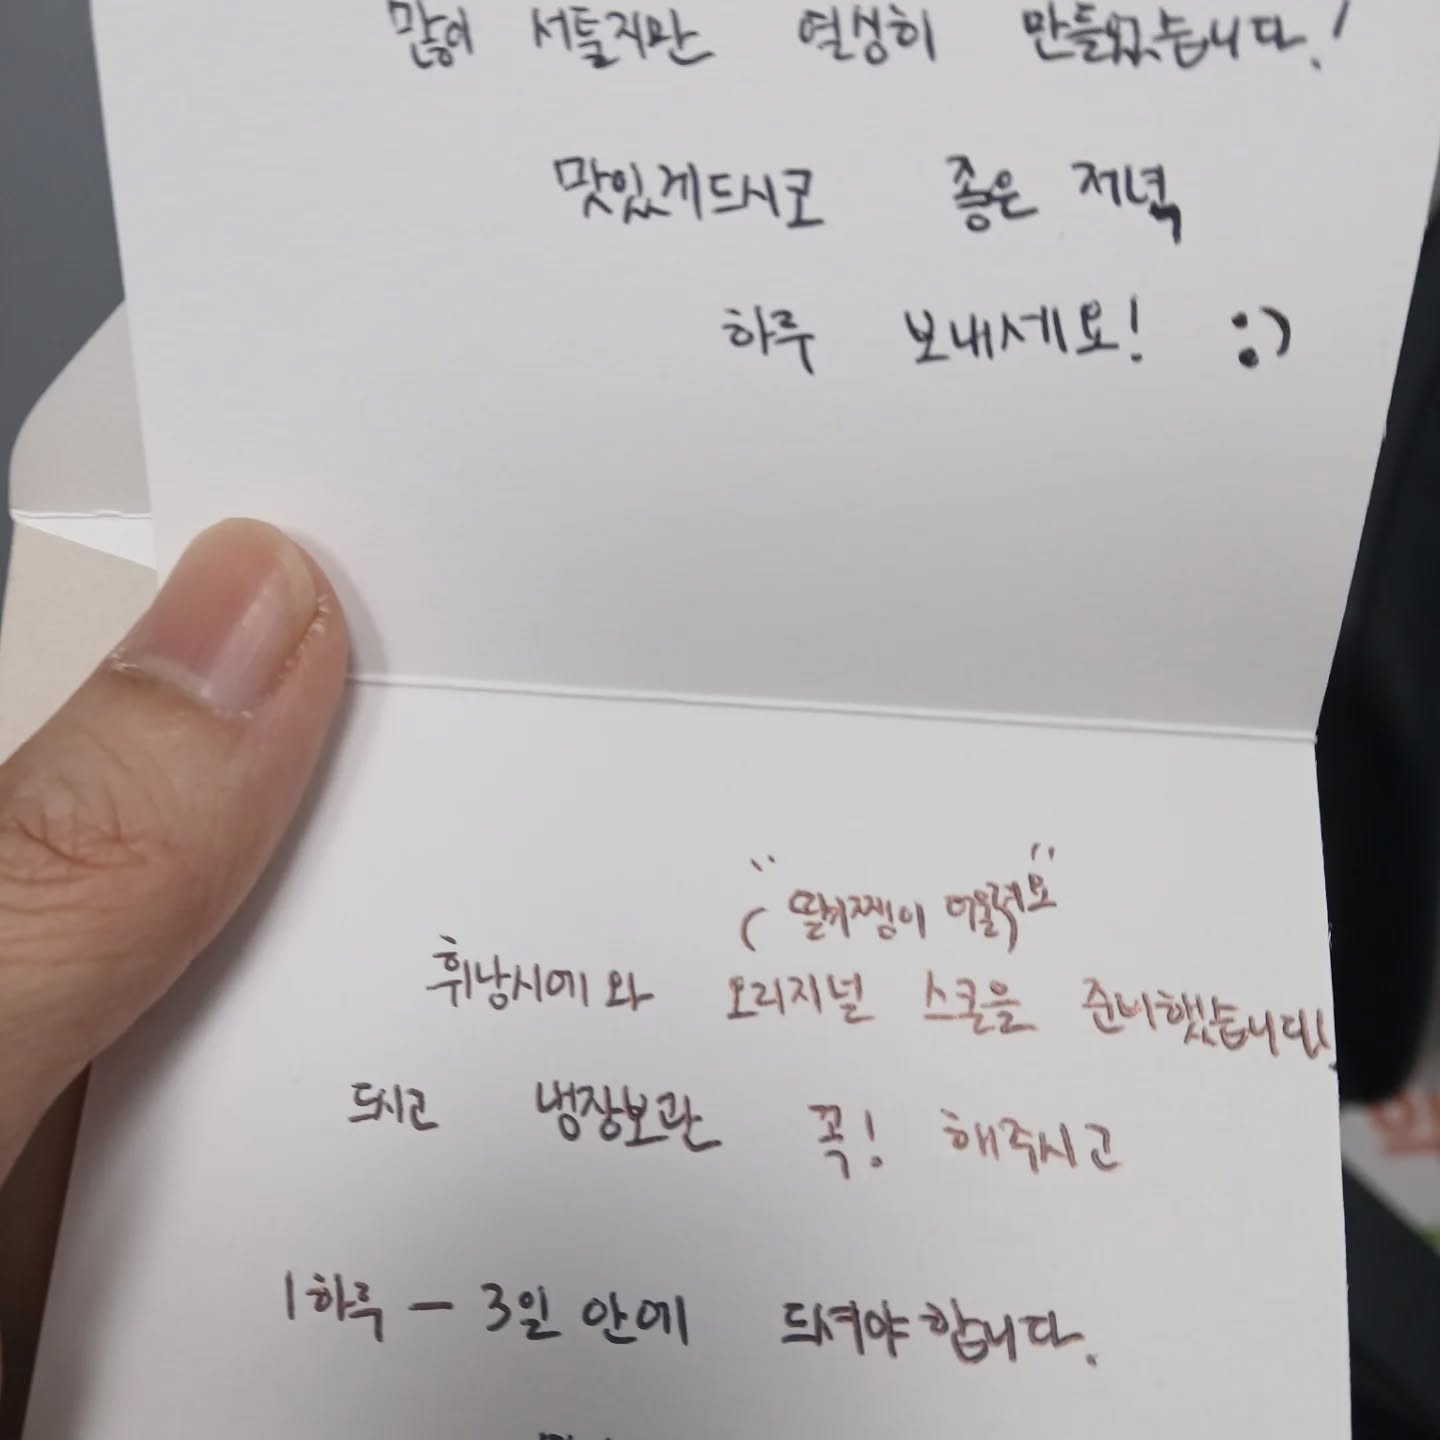 많이 서툴지만 열심히 만들었습니다!
맛있게드시고 좋은 저녁
하루 보내세요! :)
( 딸기쨈이 어울려요
휘낭시에 와 오리지널 스콘을 준비했습니다!
드시고 냉장보관 꼭! 해주시고
1하루 - 3일 안에 드셔야 합니다.